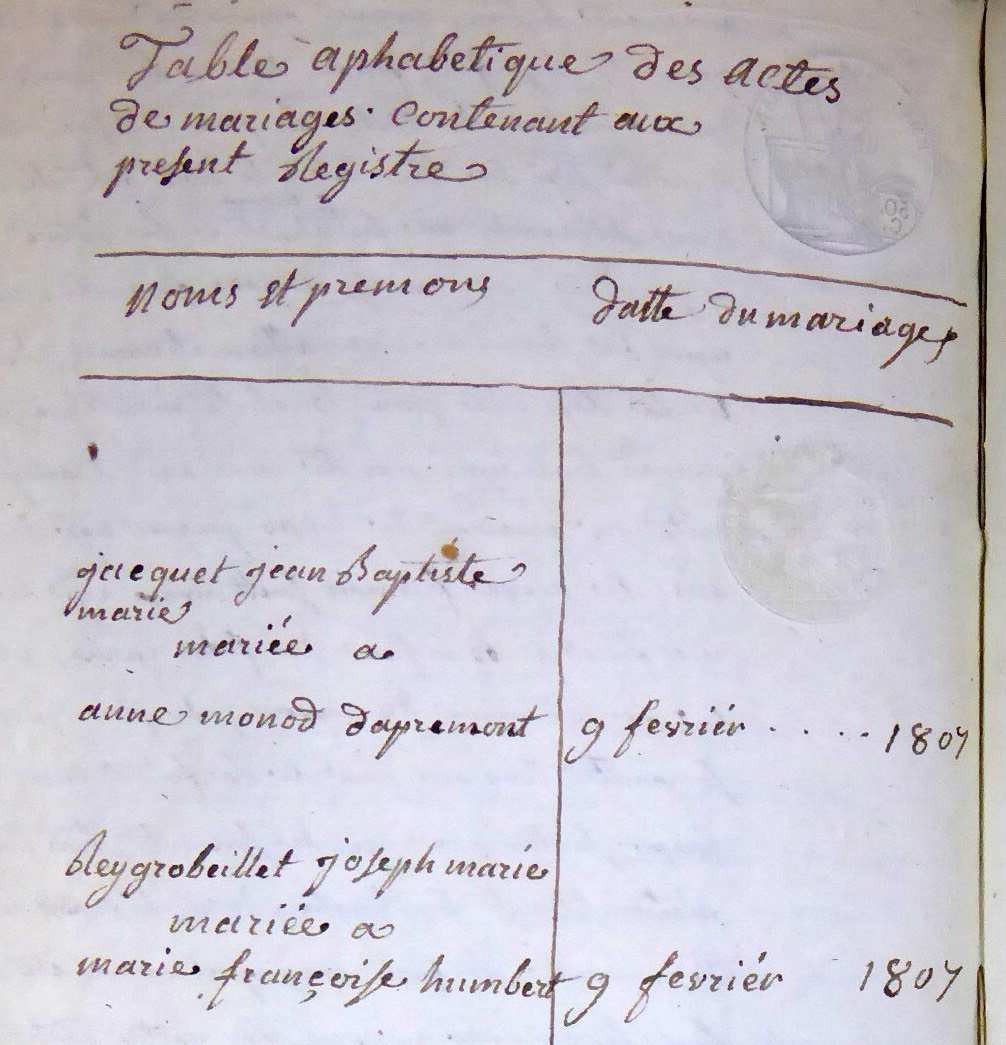 Table aphabetique des actes
de mariages. contenant aux
present Registre
noms et premons
datte du mariages
jacquet jean Baptiste
marie
mariée a
anne monod dapremont 9 fevriér ..... 1807
Reygrobeillet joseph marie
mariée a
marie françoise humbert 9 fevriér 1807